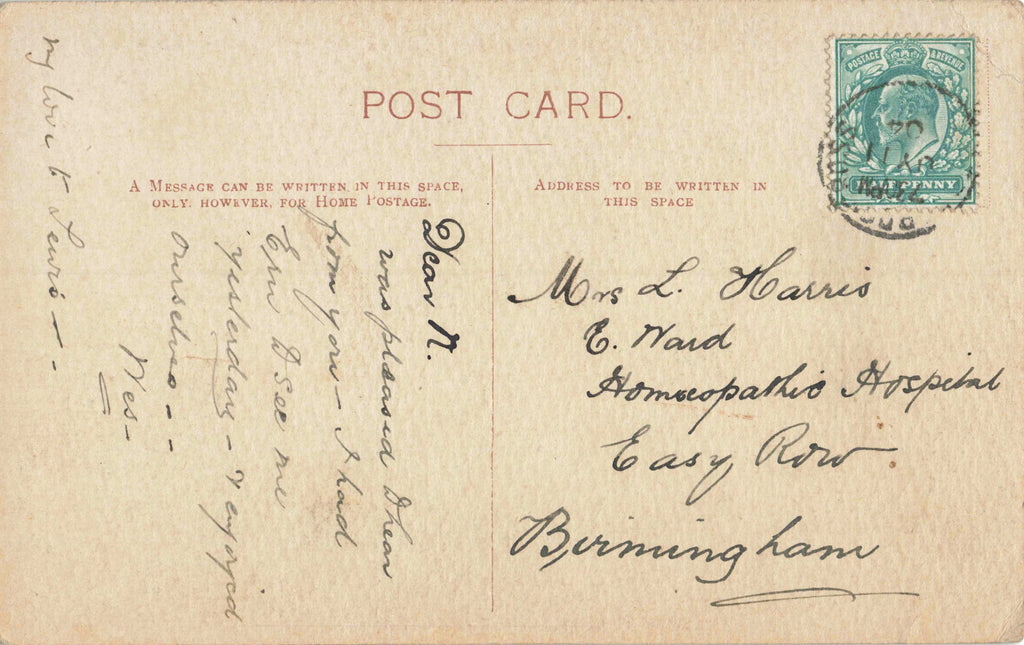 POST CARD.
A MESSAGE CAN BE WRITTEN IN THIS SPACE,
ONLY. HOWEVER, FOR HOME POSTAGE.
ADDRESS TO BE WRITTEN IN
THIS SPACE
POSTAGE & REVENUE
HALFPENNY
7.30 PM
JY 11
04
Dear N.
was pleased
from you - I had
see me
yesterday - & enjoyed
ourselves - -
my love to Lewis - -
Mrs L. Harris
E. Ward
Homœopathic Hospital
Easy Row
Birmingham